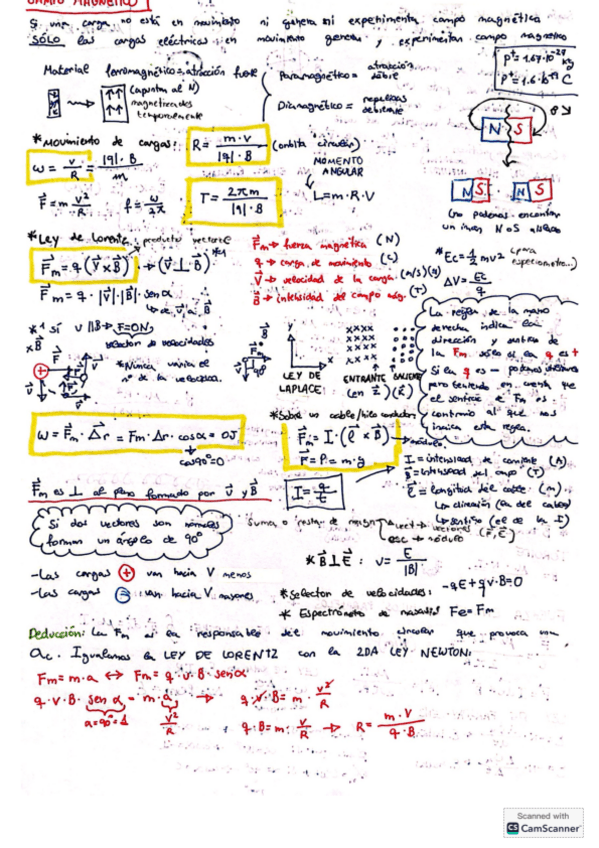 CAMPO MAGNÉTICO
Si una carga no está en movimiento ni genera ni experimenta campo magnético
SÓLO las cargas eléctricas en movimiento generan y experimentan campo magnético
P⁺ = 1.67·10⁻²⁷ kg
P⁺ = 1.6·10⁻¹⁹ C
Material ferromagnético = atracción fuerte
(apuntan al N)
magnetizados
temporalmente
Paramagnético = atracción débil
Diamagnético = repulsión débilmente
N S
*Movimiento de cargas:
R = m·v / |q|·B
(órbita circular)
ω = v/R = |q|·B / m
MOMENTO
ANGULAR
L = m·R·V
F = m v²/R
f = ω/2π
T = 2πm / |q|·B
N S N S
(no podemos encontrar
un imán N o S aislado
*Ley de Lorentz
producto vectorial
F⃗m = q (V⃗ x B⃗)
→ (V⃗ ⊥ B⃗) *¹
F⃗m = q · |V⃗|·|B⃗| · sen α
↳ de v⃗ a B⃗
F⃗m → fuerza magnética (N)
q → carga de movimiento (C)
V⃗ → velocidad de la carga (m/s)
B⃗ → intensidad del campo mag. (T)
*Ec = ½ mv²
ΔV = Ec/q
*¹ Si v || B → F = 0N
*Nunca varía el
LEY DE
LAPLACE:
ENTRANTE SALIENTE
La regla de la mano
derecha indica la
dirección y sentido de
la Fm sólo si la q es +
Si la q es −
pero teniendo en cuenta que
el sentido de Fm es
contrario al que nos
indica esta regla.
ω = F⃗m · Δ⃗r = Fm · Δr · cos α = 0J
cos 90° = 0
*Sobre un cable/hilo conductor
F⃗m = I · (ℓ⃗ x B⃗)
→ módulo
F = P = m·g
I = q/t
I = intensidad de corriente (A)
B⃗ = intensidad del campo (T)
ℓ⃗ = longitud del cable (m)
↳ dirección (la del cable)
↳ sentido (el de la I)
F⃗m es ⊥ al plano formado por v⃗ y B⃗
Si dos vectores son normales
forman un ángulo de 90°
Suma o resta de
vect → vectores (F⃗, E⃗)
esc → módulo
* B⃗ ⊥ E⃗ : v = E / |B|
- Las cargas + van hacia V menores
- Las cargas − van hacia V mayores
*Selector de velocidades:
-qE + qv·B = 0
* Espectrómetro de masas: Fe = Fm
Deducción: La Fm es la responsable del movimiento circular que provoca una
ac. Igualamos la LEY DE LORENTZ con la 2DA LEY NEWTON:
Fm = m·a ↔ Fm = q·v·B·sen α
q·v·B·sen α = m·a → q·v·B = m·v²/R
α = 90° = 1
v²/R
q·B = m·v/R → R = m·V / q·B
Scanned with
CS CamScanner